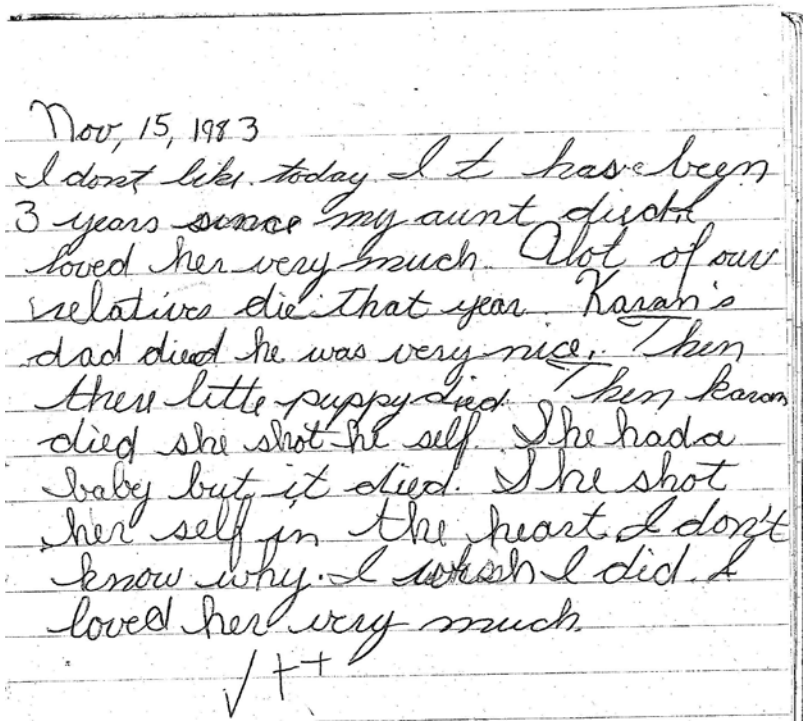 Nov, 15, 1983
I dont like today I t have been
3 years since my aunt died I
loved her very much. Alot of our
relatives die that year. Karan's
dad died he was very nice. Then
there little puppy died. Then karan
died she shot he self. She had a
baby but it died. She shot
her self in the heart. I don't
know why. I wish I did. I
loved her very much.
✓++